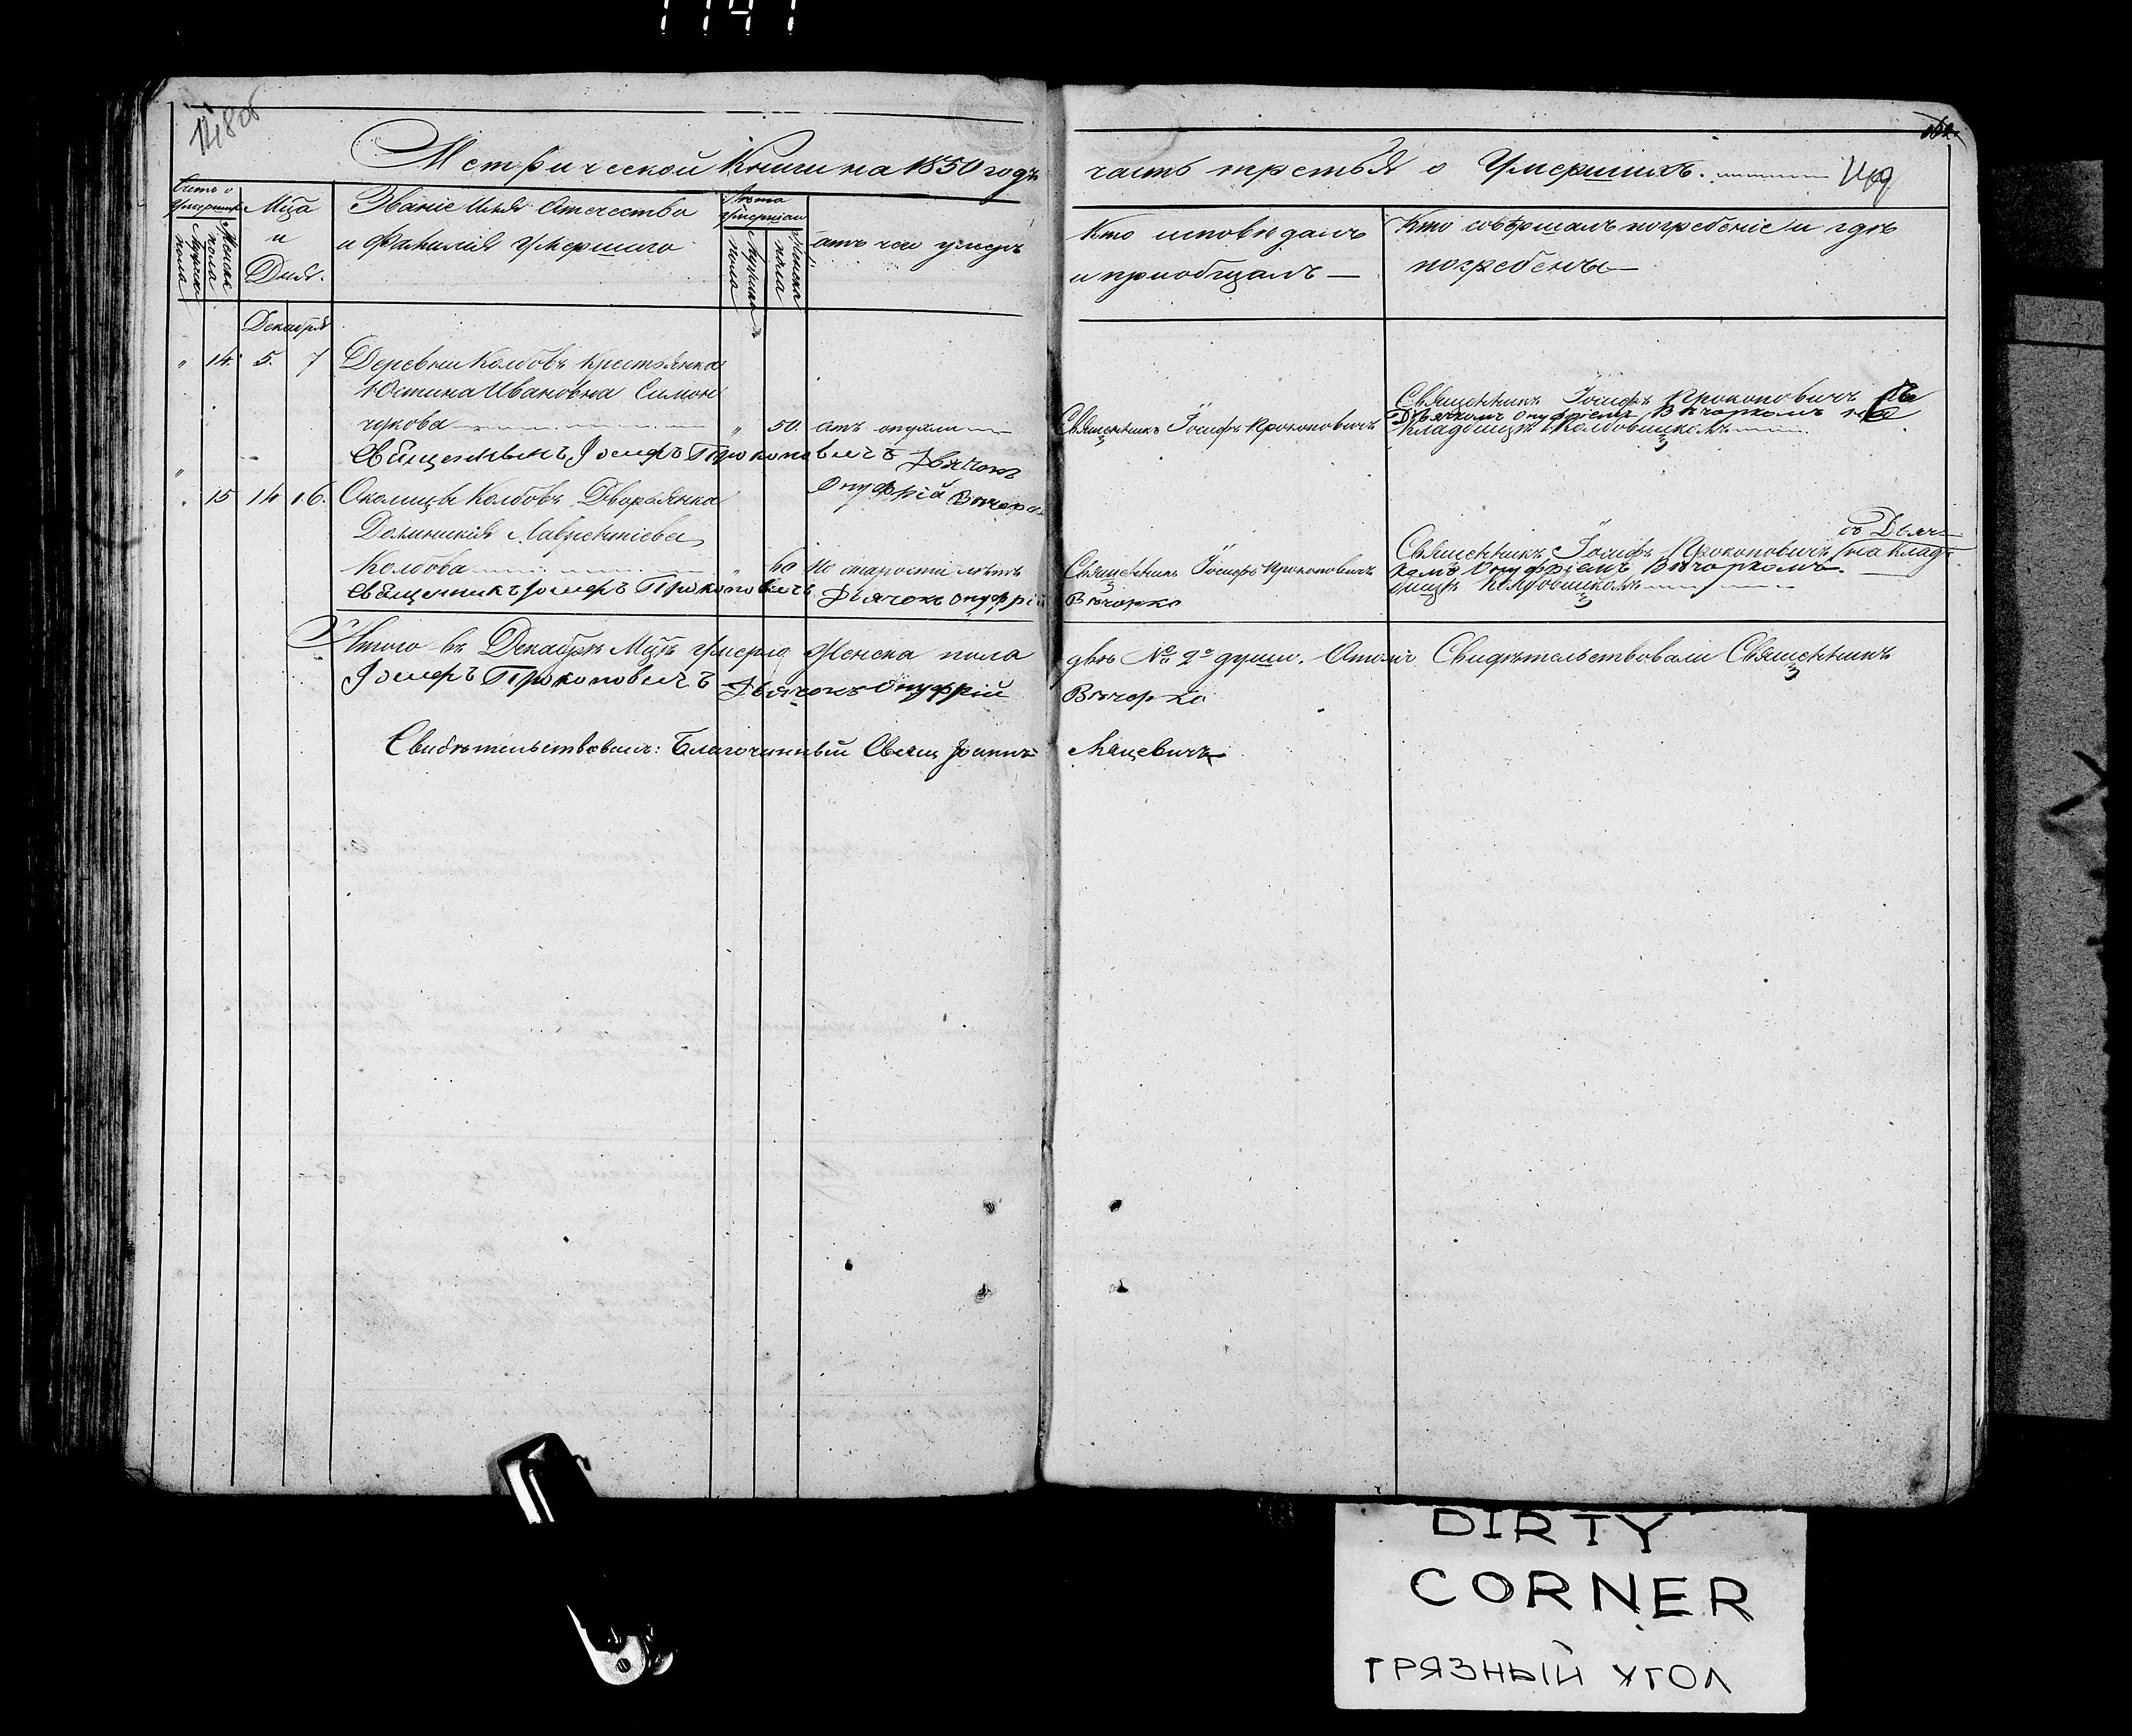 148 об
Метрической Книги на 1850 годъ
часть третья о Умершихъ.
149
Счетъ о Умершихъ
Мужеска пола
Женска пола
Мца и Дня.
Званіе Имя Отечество
и Фамилія Умершаго
Лѣта Умершаго
Мужеска пола
Женска пола
отъ чего умеръ
Кто исповѣдалъ
и пріобщалъ —
Кто совершалъ погребеніе и гдѣ
погребены —
Декабря
" 14. 5. 7 Деревни Колбовъ Крестьянка
Юстина Ивановна Симон
чукова " 50. отъ
Священникъ Іосифъ Прокоповичъ
Священникъ Іосифъ Прокоповичъ съ
Дьячкомъ Онуфріемъ Вѣчоркомъ на
Кладбищѣ Колбовицкомъ
Священникъ Іосифъ Прокоповичъ Дьячокъ
Онуфрій Вѣчорко
" 15 14 16. Околицы Колбовъ Дворянка
Доминикія Лаврентіева
Колбова " 60 По старости лѣтъ
Священникъ Іосифъ Прокоповичъ
съ Дьяч
Священникъ Іосифъ Прокоповичъ (на Клад
комъ Онуфріемъ Вѣчоркомъ
бищѣ Колбовицкомъ
Священникъ Іосифъ Прокоповичъ Дьячокъ Онуфрій Вѣчорко
Итого въ Декабрѣ Мцѣ Умерло Женска пола двѣ № 2 души. О томъ Свидѣтельствовали Священникъ
Іосифъ Прокоповичъ Дьячокъ Онуфрій Вѣчорко
Свидѣтельствовалъ: Благочинный Свящ Іоаннъ Мацевичъ
DIRTY
CORNER
ГРЯЗНЫЙ УГОЛ